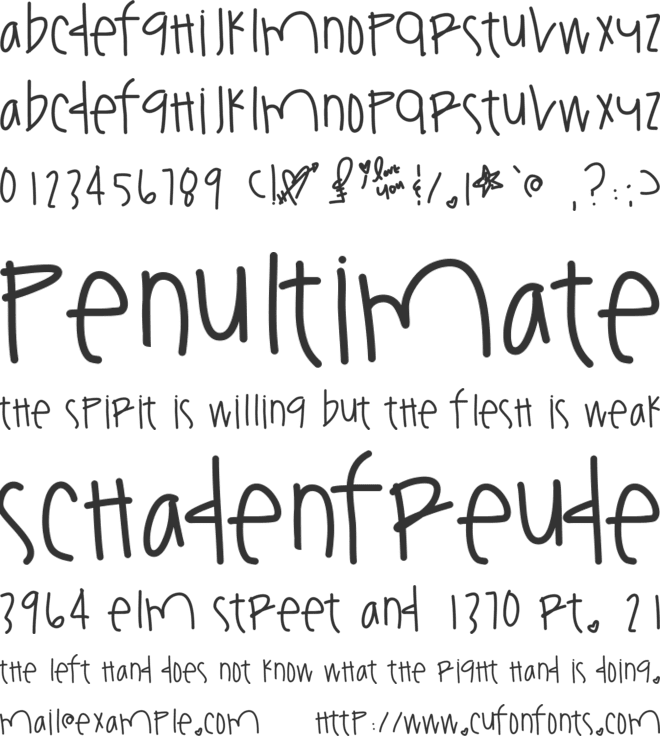 abcdefghijklmnopqrstuvwxyz
abcdefghijklmnopqrstuvwxyz
0123456789 (! love you &/,|*`@ ,?:;)
Penultimate
the spirit is willing but the flesh is weak
schadenfreude
3964 elm street and 1370 rt. 21
the left hand does not know what the right hand is doing.
mail@example.com http://www.cufonfonts.com